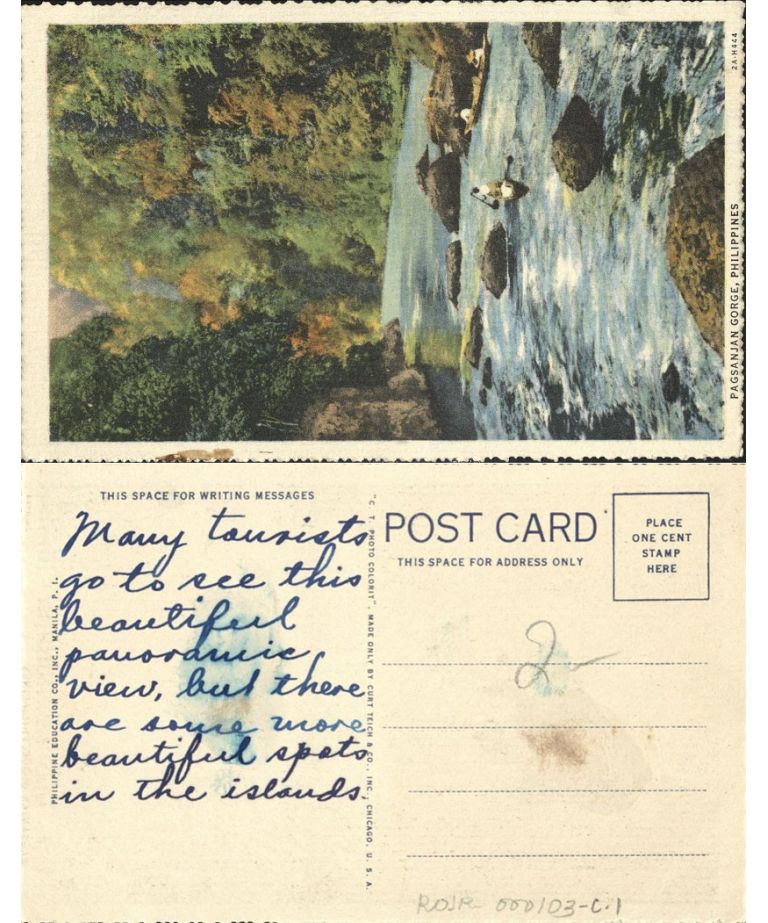 2A-H444
PAGSANJAN GORGE, PHILIPPINES
THIS SPACE FOR WRITING MESSAGES
Many tourists
go to see this
beautiful
panoramic
view, but there
are some more
beautiful spots
in the islands.
PHILIPPINE EDUCATION CO., INC., MANILA, P. I.
"C. T. PHOTO COLORIT", MADE ONLY BY CURT TEICH & CO., INC., CHICAGO, U. S. A.
POST CARD
THIS SPACE FOR ADDRESS ONLY
PLACE
ONE CENT
STAMP
HERE
2-
000103-C.1